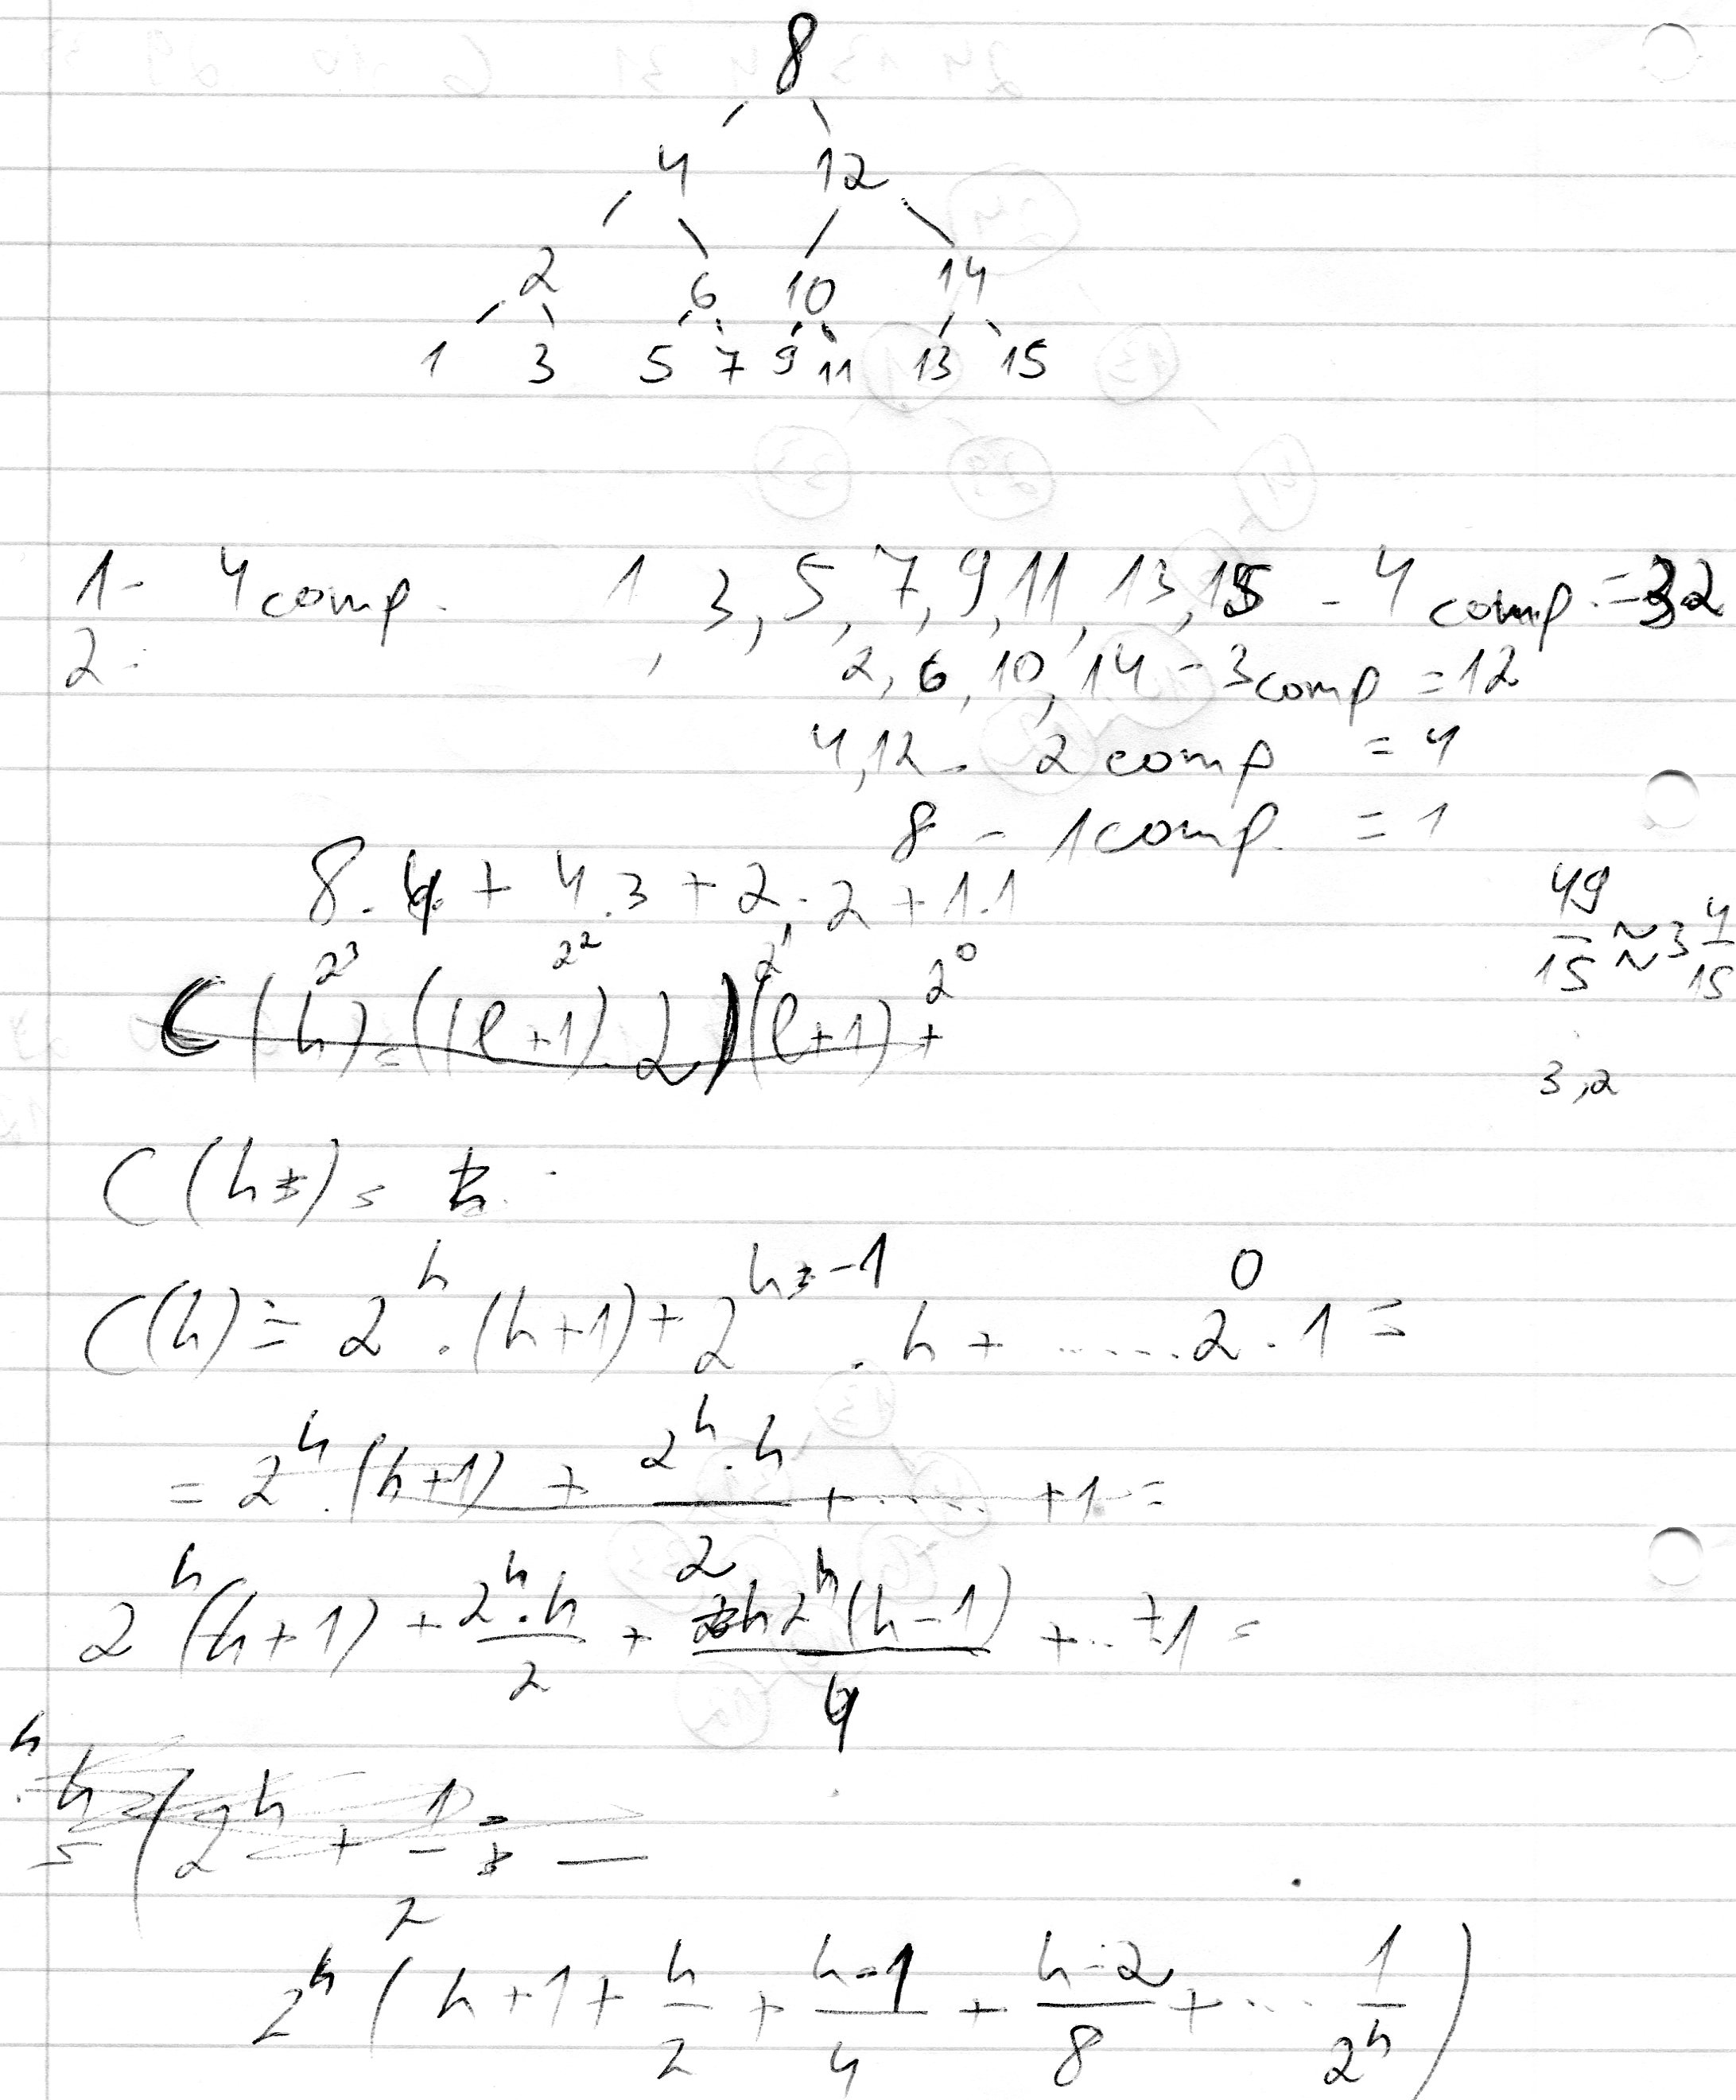 8
4 12
2 6 10 14
1 3 5 7 9 11 13 15
1- 4 comp. 1, 3, 5, 7, 9, 11, 13, 15 - 4 comp. = 32
2- 2, 6, 10, 14 - 3 comp = 12
4, 12 - 2 comp = 4
8 - 1 comp. = 1
8 · 4 + 4 · 3 + 2 · 2 + 1 · 1
2³ 2² 2¹ 2⁰
49/15 ≈ 3 4/15
C(h) = ((l+1) · 2)(l+1) +
3,2
C(h) =
C(h) = 2^h · (h+1) + 2^(h-1) · h + ...... 2^0 · 1 =
= 2^h · (h+1) + 2^h · h / 2 + ..... + 1 =
2^h (h+1) + 2^h · h / 2 + 2^h (h-1) / 4 + ... + 1 =
2^h ( h+1 + h/2 + h-1/4 + h-2/8 + ... 1/2^h )